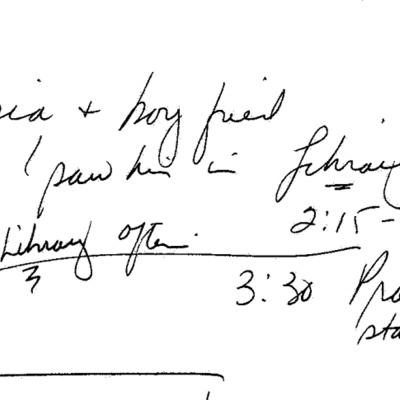 sia + boy fried
saw him in Library
2:15-
Library often.
3
3:30 Pro
sta